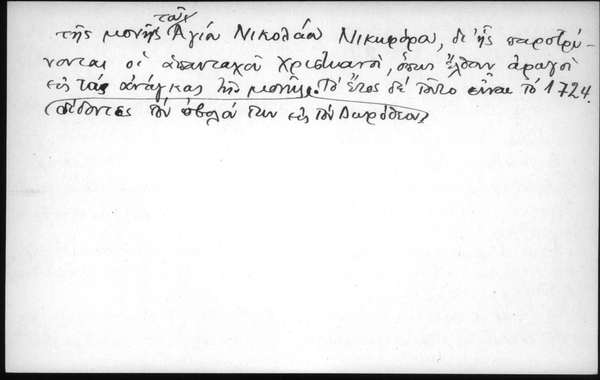 τοῦ
τῆς μονῆς Ἁγίου Νικολάου Νικηφόρου, δι' ἧς παροτρύ-
νονται οἱ ἁπανταχοῦ Χριστιανοί, ὅπως ἔλθουν ἀρωγοὶ
εἰς τὰς ἀνάγκας τῆς μονῆς. Τὸ ἔτος δὲ τοῦτο εἶναι τὸ 1724.
(δίδοντες τὸν ὀβολόν των εἰς τὸν Δωρόθεον)